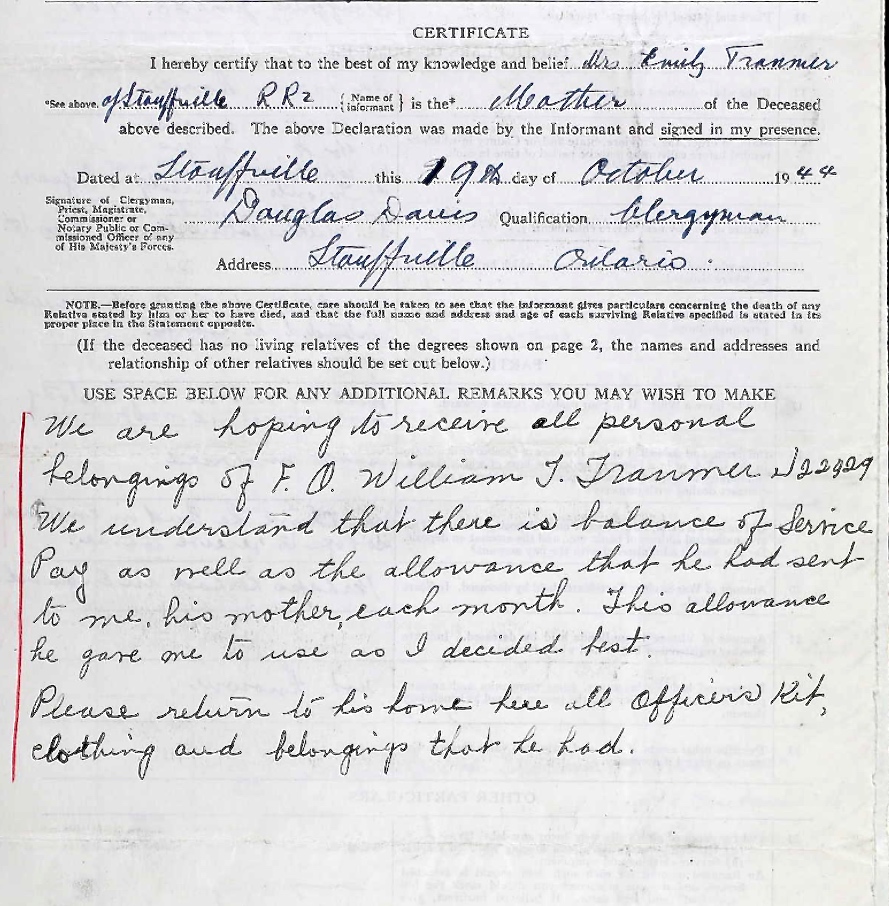 CERTIFICATE
I hereby certify that to the best of my knowledge and belief Mrs Emily Tranmer
*See above. of Stouffville RR2 {Name of informant} is the* Mother of the Deceased
above described. The above Declaration was made by the Informant and signed in my presence.
Dated at Stouffville this 19th day of October 1944
Signature of Clergyman,
Priest, Magistrate,
Commissioner or
Notary Public or Com-
missioned Officer of any
of His Majesty's Forces.
Douglas Davis Qualification Clergyman
Address Stouffville Ontario.
NOTE.—Before granting the above Certificate, care should be taken to see that the informant gives particulars concerning the death of any
Relative stated by him or her to have died, and that the full name and address and age of each surviving Relative specified is stated in its
proper place in the Statement opposite.
(If the deceased has no living relatives of the degrees shown on page 2, the names and addresses and
relationship of other relatives should be set out below.)
USE SPACE BELOW FOR ANY ADDITIONAL REMARKS YOU MAY WISH TO MAKE
We are hoping to receive all personal
belongings of F. O. William T. Tranmer J22929
We understand that there is balance of Service
Pay as well as the allowance that he had sent
to me, his mother, each month. This allowance
he gave me to use as I decided best.
Please return to his home here all Officer's Kit,
clothing and belongings that he had.